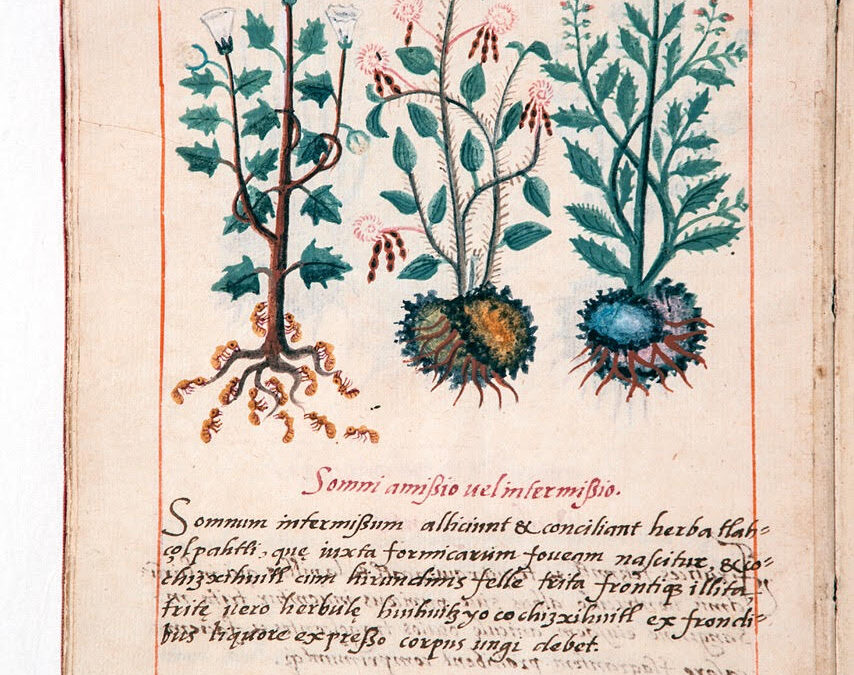 Somni amißio uel intermißio.
Somnum intermißum alliciunt & conciliant herba tlah=
çolpahtli, quę iuxta formicarum foueam nascitur, & co=
chizxihuitl cum hirundinis felle trita frontiq́; illita,
tritę uero herbulę huihuitzyocochizxihuitl ex frondi=
bus liquore expreßo corpus ungi debet.